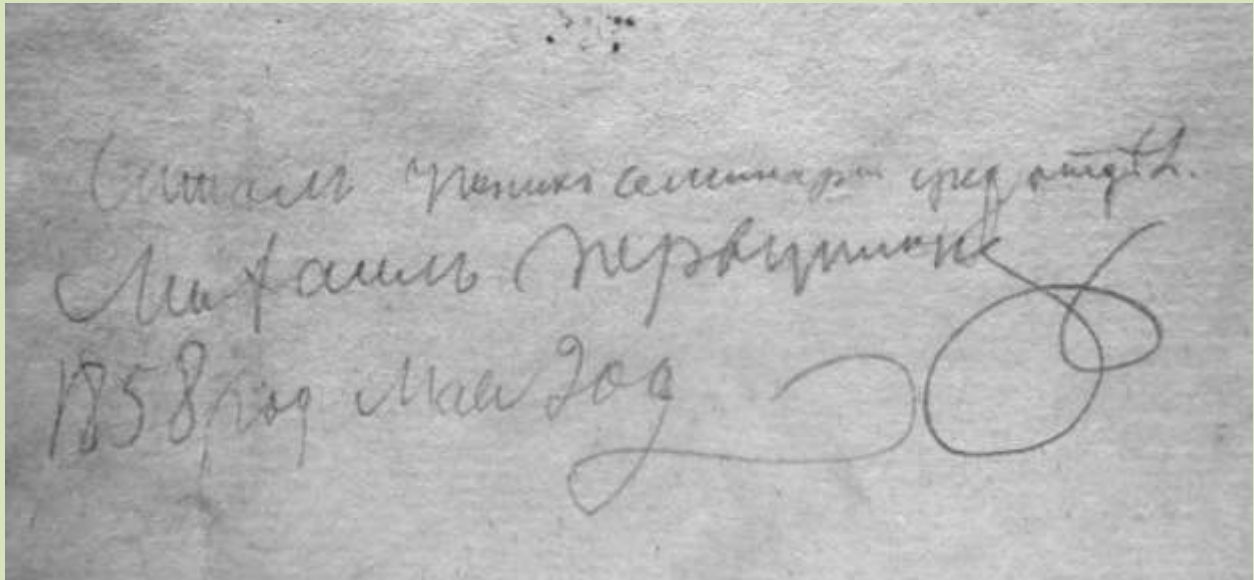 Читалъ ученикъ семинаріи сред отдѣл.
Михаилъ Первушинъ
1858 год Мая 20д